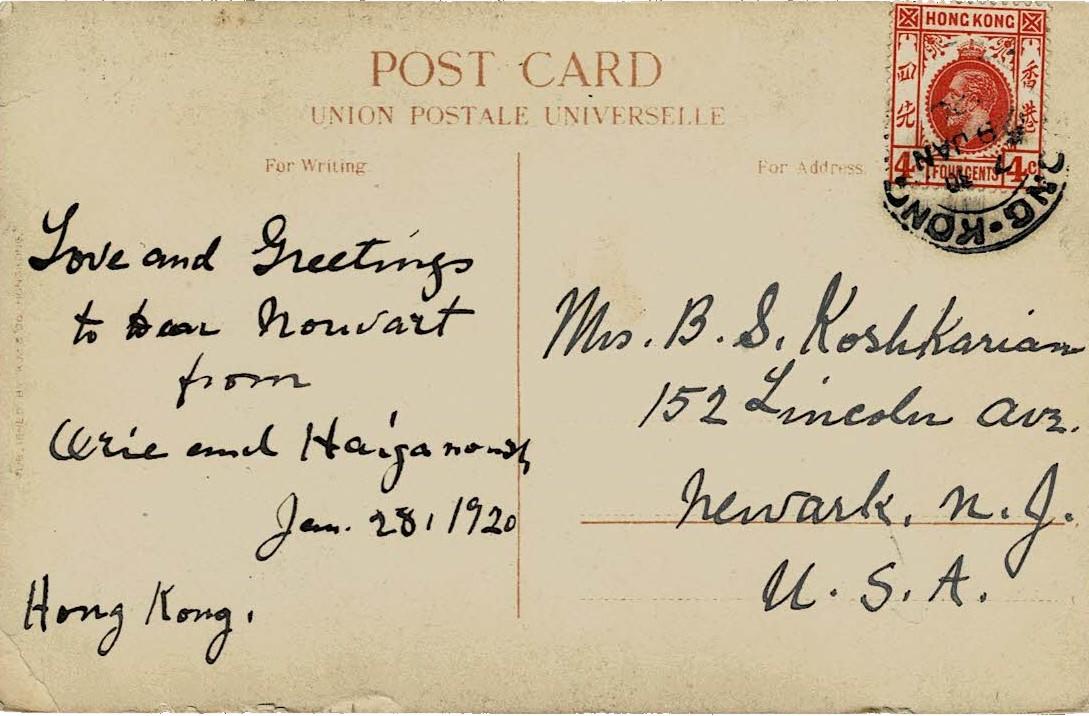 POST CARD
UNION POSTALE UNIVERSELLE
For Writing.
For Address.
HONG KONG
四先
香港
4c
FOUR CENTS
4c
HONG·KONG
9 JAN
Love and Greetings
to Dear Nouvart
from
and Haiganoush
Jan. 28, 1920
Hong Kong.
Mrs. B. S. Koshkarian
152 Lincoln Ave.
Newark. N. J.
U. S. A.